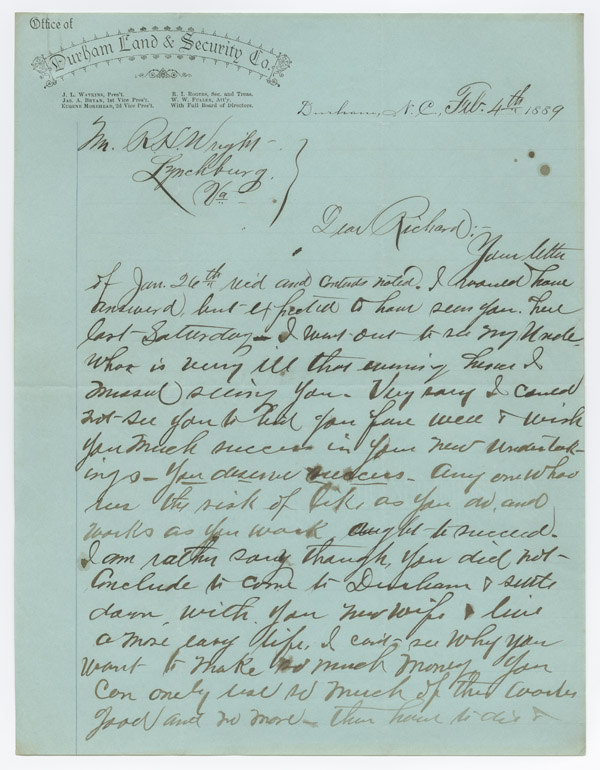 Office of
Durham Land & Security Co.
J. L. Watkins, Pres't.
Jas. A. Bryan, 1st Vice Pres't.
Eugene Morehead, 2d Vice Pres't.
R. I. Rogers, Sec. and Treas.
W. W. Fuller, Att'y.
With Full Board of Directors.
Durham, N. C., Feb. 4th 1889
Mr. R. H. Wright
Lynchburg.
Va
Dear Richard:-
Your letter
of Jan. 26th rec'd and contents noted. I would have
answered, but expected to have seen you here
last Saturday - I went out to see my Uncle
who is very ill that evening hence I
missed seeing you. Very sorry I could
not see you to bid you fare well & wish
you much success in your new undertak-
ings - You deserve success. Any one who
runs the risk of life, as you do, and
works as you work ought to succeed.
I am rather sorry though, you did not
conclude to come to Durham & settle
down with you new wife & live
a more easy life. I can't see why you
want to make so much money. You
can onely use so much of this worlds
good and no more - then have to die &